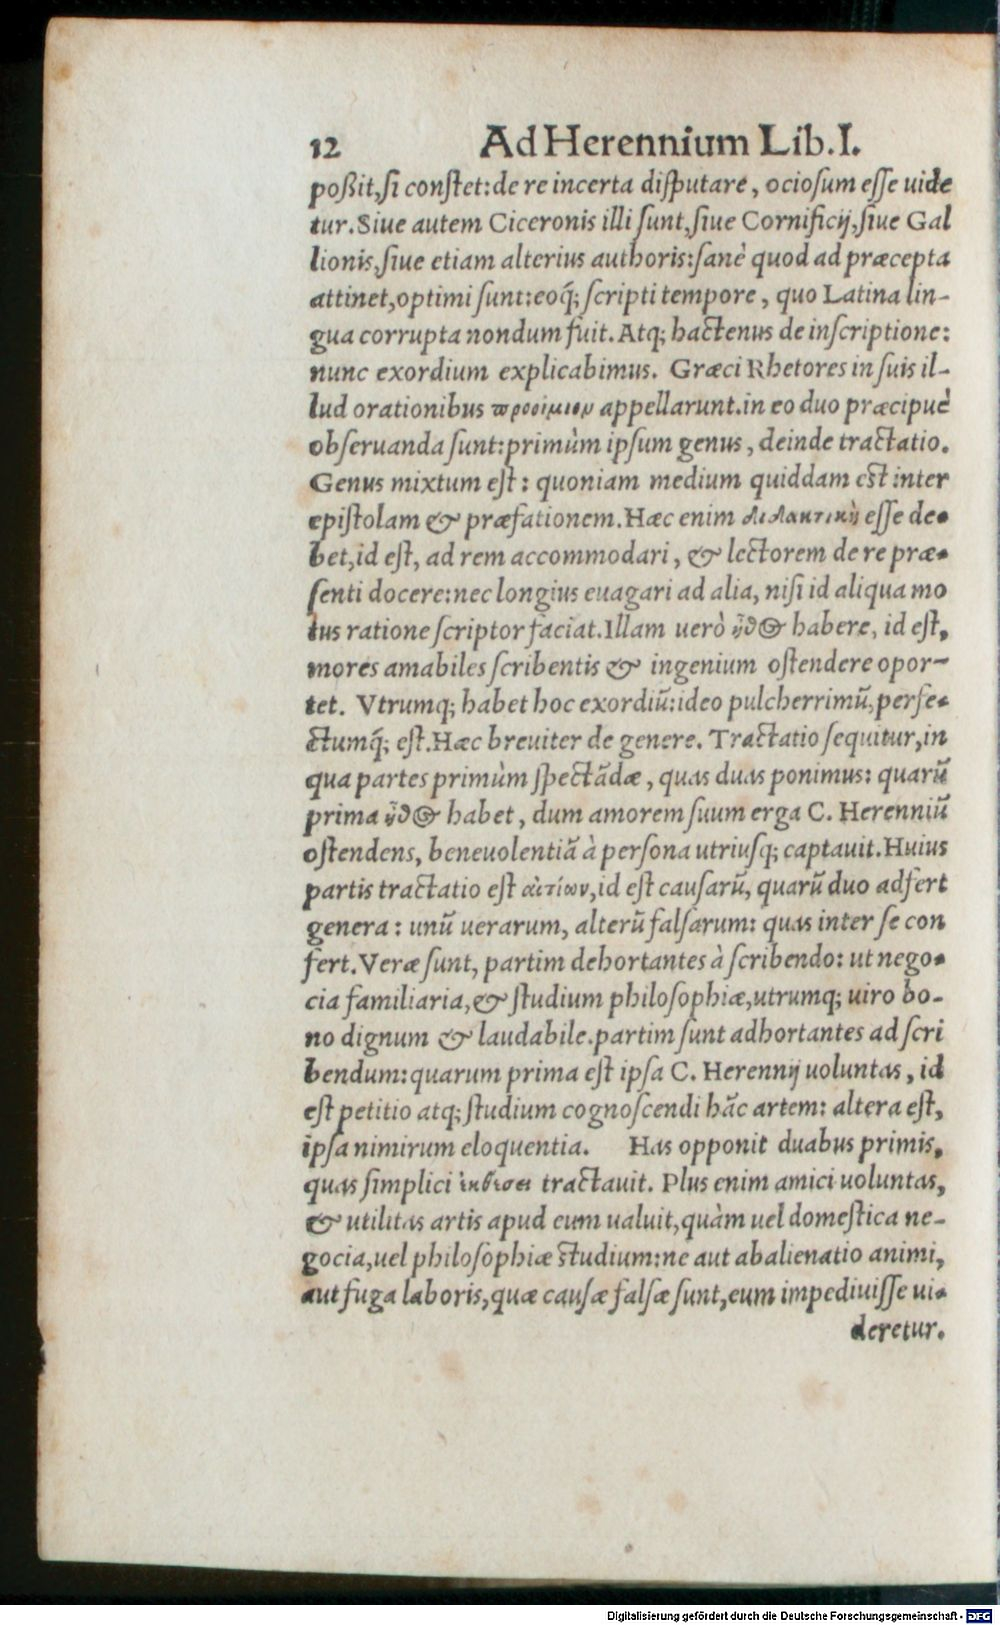 12 Ad Herennium Lib.I.
poßit, si constet: de re incerta disputare, ociosum esse uide
tur. Siue autem Ciceronis illi sunt, siue Cornificij, siue Gal
lionis, siue etiam alterius authoris: sanè quod ad præcepta
attinet, optimi sunt: eoq́; scripti tempore, quo Latina lin-
gua corrupta nondum fuit. Atq; hactenus de inscriptione:
nunc exordium explicabimus. Græci Rhetores in suis il-
lud orationibus προοίμιον appellarunt. in eo duo præcipuè
obseruanda sunt: primùm ipsum genus, deinde tractatio.
Genus mixtum est: quoniam medium quiddam est inter
epistolam & præfationem. Hæc enim διδακτικὴ esse de-
bet, id est, ad rem accommodari, & lectorem de re præ-
senti docere: nec longius euagari ad alia, nisi id aliqua mo
tus ratione scriptor faciat. Illam uerò ἦθος habere, id est,
mores amabiles scribentis & ingenium ostendere opor-
tet. Vtrumq; habet hoc exordiū: ideo pulcherrimū, perfe-
ctumq́; est. Hæc breuiter de genere. Tractatio sequitur, in
qua partes primùm spectādæ, quas duas ponimus: quarū
prima ἦθος habet, dum amorem suum erga C. Herenniū
ostendens, beneuolentiā à persona utriusq; captauit. Huius
partis tractatio est αἰτίων, id est causarū, quarū duo adfert
genera: unū uerarum, alterū falsarum: quas inter se con
fert. Veræ sunt, partim dehortantes à scribendo: ut nego-
cia familiaria, & studium philosophiæ, utrumq; uiro bo-
no dignum & laudabile. partim sunt adhortantes ad scri
bendum: quarum prima est ipsa C. Herennij uoluntas, id
est petitio atq; studium cognoscendi hāc artem: altera est,
ipsa nimirum eloquentia. Has opponit duabus primis,
quas simplici ἐκθέσει tractauit. Plus enim amici uoluntas,
& utilitas artis apud eum ualuit, quàm uel domestica ne-
gocia, uel philosophiæ studium: ne aut abalienatio animi,
aut fuga laboris, quæ causæ falsæ sunt, eum impediuisse ui-
deretur.
Digitalisierung gefördert durch die Deutsche Forschungsgemeinschaft - DFG